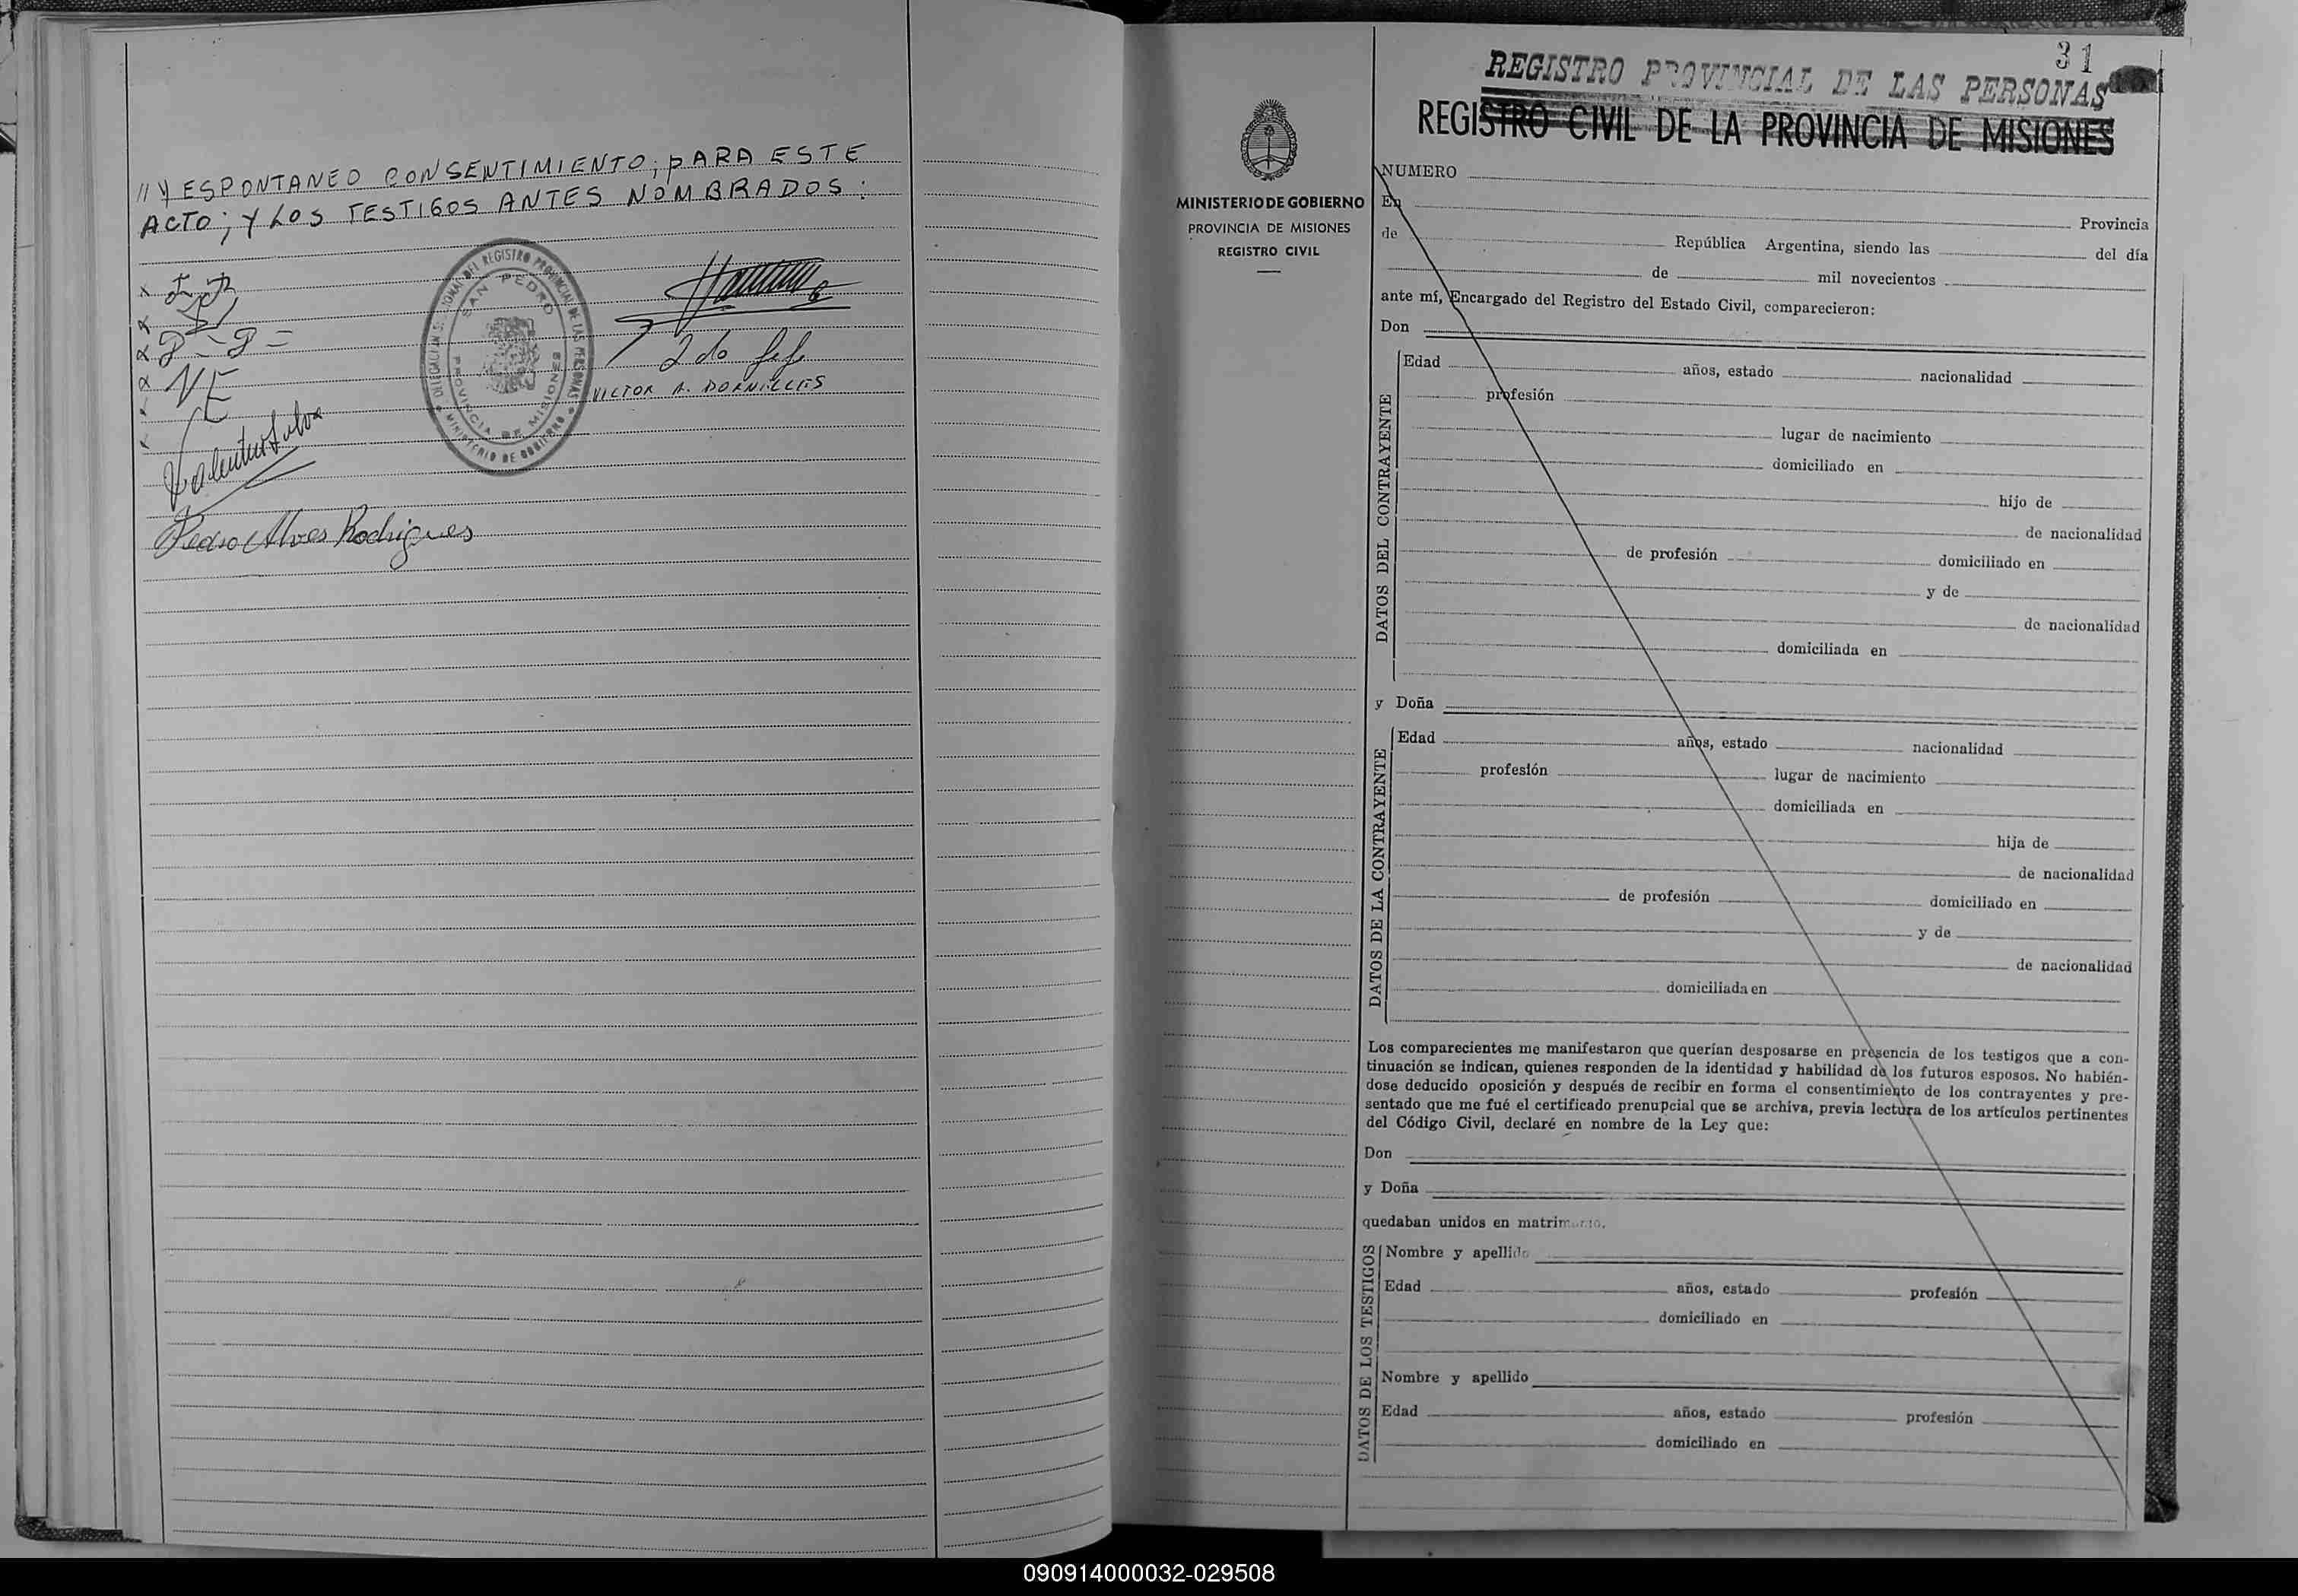 // Y ESPONTANEO CONSENTIMIENTO; PARA ESTE
ACTO; Y LOS TESTIGOS ANTES NOMBRADOS:
DELEGACION SECCIONAL DEL REGISTRO PROVINCIAL DE LAS PERSONAS
SAN PEDRO
PROVINCIA DE MISIONES
MINISTERIO DE GOBIERNO
2do Jefe
VICTOR A. DORNELLES
Pedro Alves Rodrigues
31
REGISTRO PROVINCIAL DE LAS PERSONAS
REGISTRO CIVIL DE LA PROVINCIA DE MISIONES
MINISTERIO DE GOBIERNO
PROVINCIA DE MISIONES
REGISTRO CIVIL
NUMERO
En Provincia
de República Argentina, siendo las del día
de mil novecientos
ante mí, Encargado del Registro del Estado Civil, comparecieron:
Don
DATOS DEL CONTRAYENTE
Edad años, estado nacionalidad
profesión
lugar de nacimiento
domiciliado en
hijo de
de nacionalidad
de profesión domiciliado en
y de
de nacionalidad
domiciliada en
y Doña
DATOS DE LA CONTRAYENTE
Edad años, estado nacionalidad
profesión lugar de nacimiento
domiciliada en
hija de
de nacionalidad
de profesión domiciliado en
y de
de nacionalidad
domiciliada en
Los comparecientes me manifestaron que querían desposarse en presencia de los testigos que a con-
tinuación se indican, quienes responden de la identidad y habilidad de los futuros esposos. No habién-
dose deducido oposición y después de recibir en forma el consentimiento de los contrayentes y pre-
sentado que me fué el certificado prenupcial que se archiva, previa lectura de los artículos pertinentes
del Código Civil, declaré en nombre de la Ley que:
Don
y Doña
quedaban unidos en matrimonio.
DATOS DE LOS TESTIGOS
Nombre y apellido
Edad años, estado profesión
domiciliado en
Nombre y apellido
Edad años, estado profesión
domiciliado en
090914000032-029508